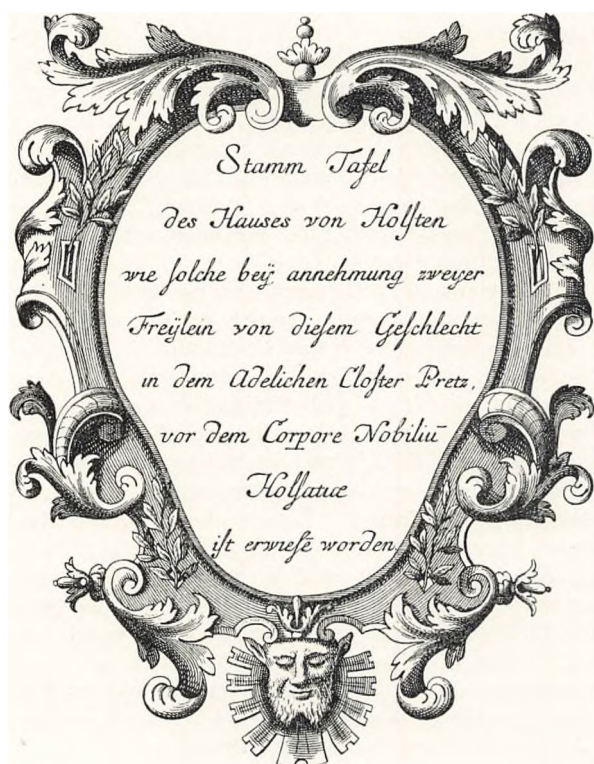 Stamm Tafel
des Hauses von Holſten
wie ſolche beÿ annehmung zweyer
Freÿlein von dieſem Geſchlecht
in dem Adelichen Cloſter Pretz,
vor dem Corpore Nobiliū
Holſatiæ
iſt erwieſē worden.